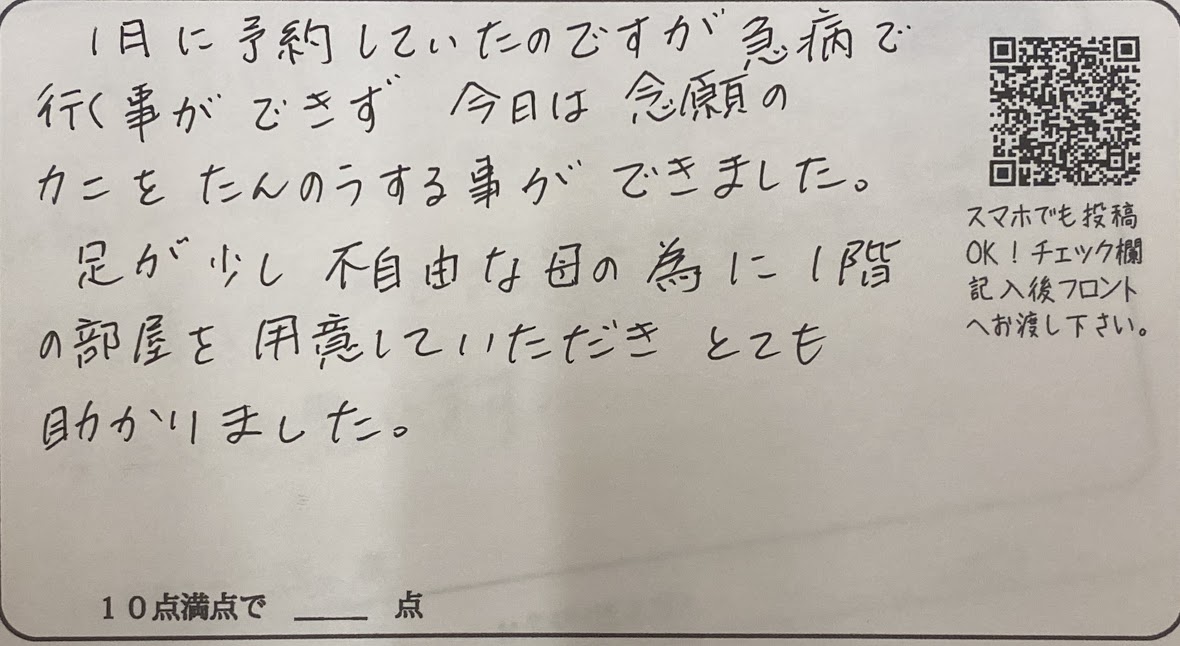 1月に予約していたのですが急病で
行く事ができず 今日は念願の
カニをたんのうする事ができました。
足が少し不自由な母の為に1階
の部屋を用意していただきとても
助かりました。
スマホでも投稿
OK！チェック欄
記入後フロント
へお渡し下さい。
10点満点で ____ 点